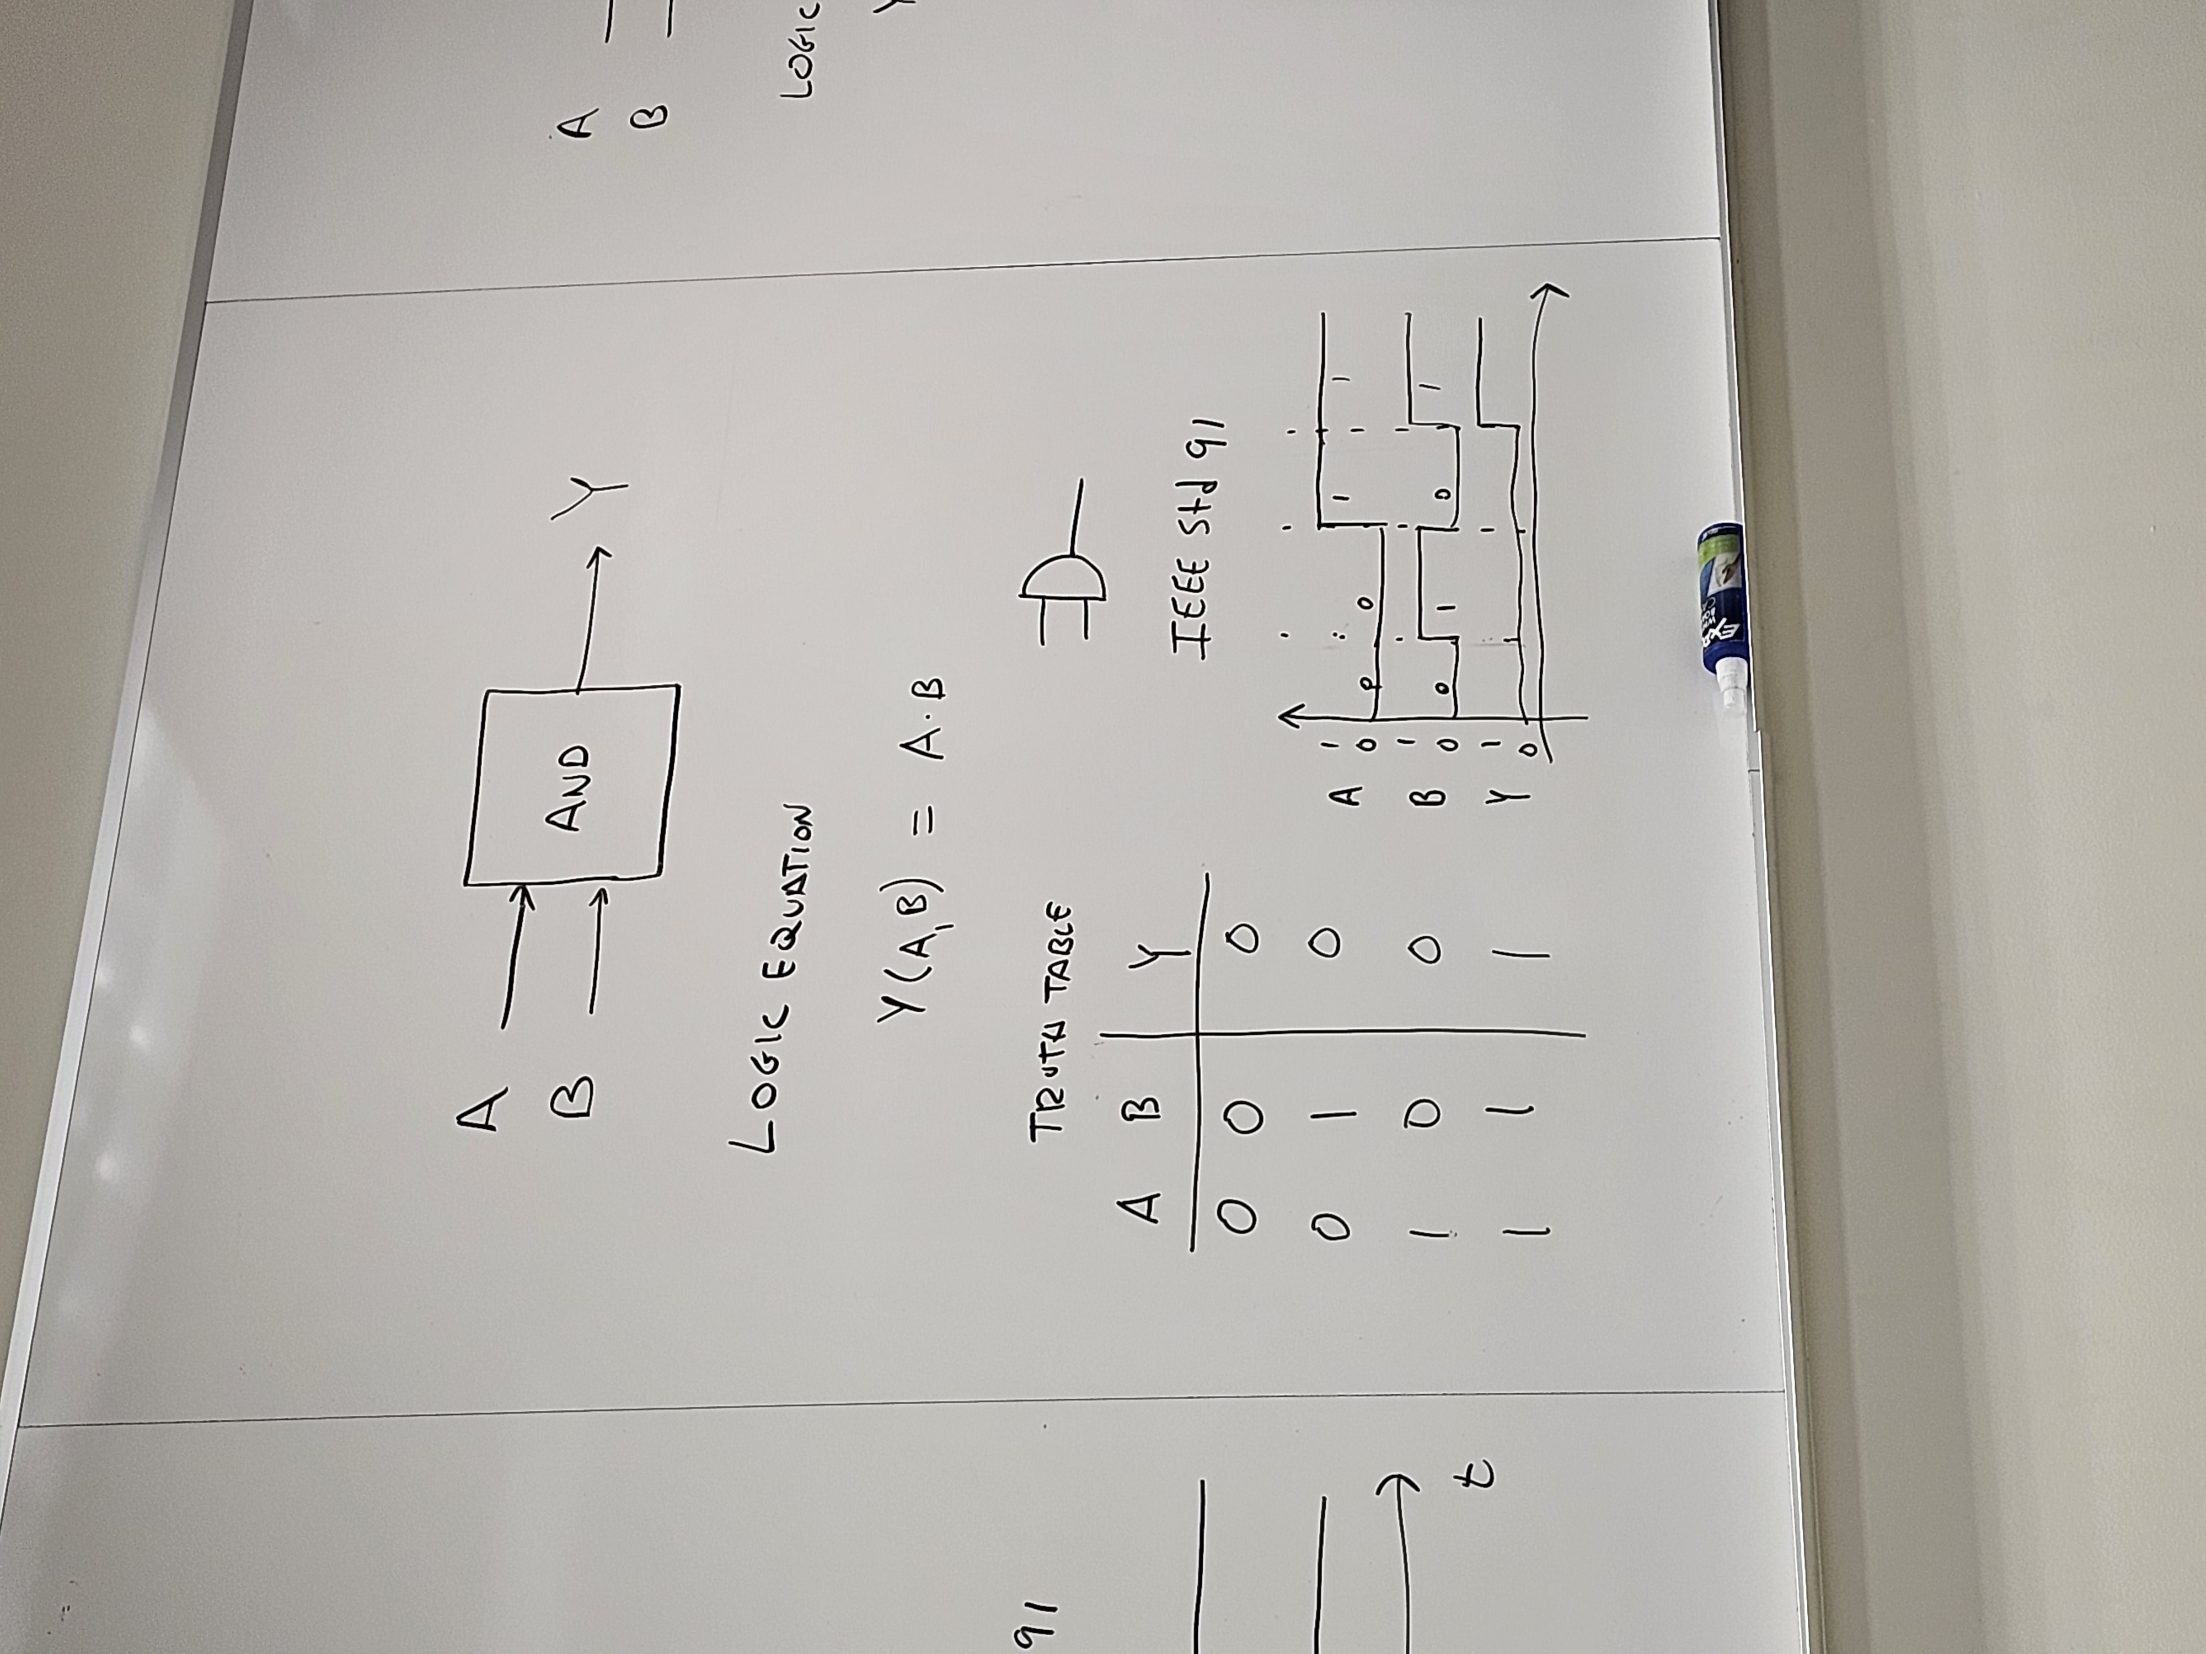 A
B
AND
Y
LOGIC EQUATION
Y(A,B) = A·B
TRUTH TABLE
A B Y
0 0 0
0 1 0
1 0 0
1 1 1
IEEE Std 91
A 1 0 0 0 1 1
B 1 0 0 1 0 1
Y 1 0
91
t
A
B
LOGIC
Y
EXPO